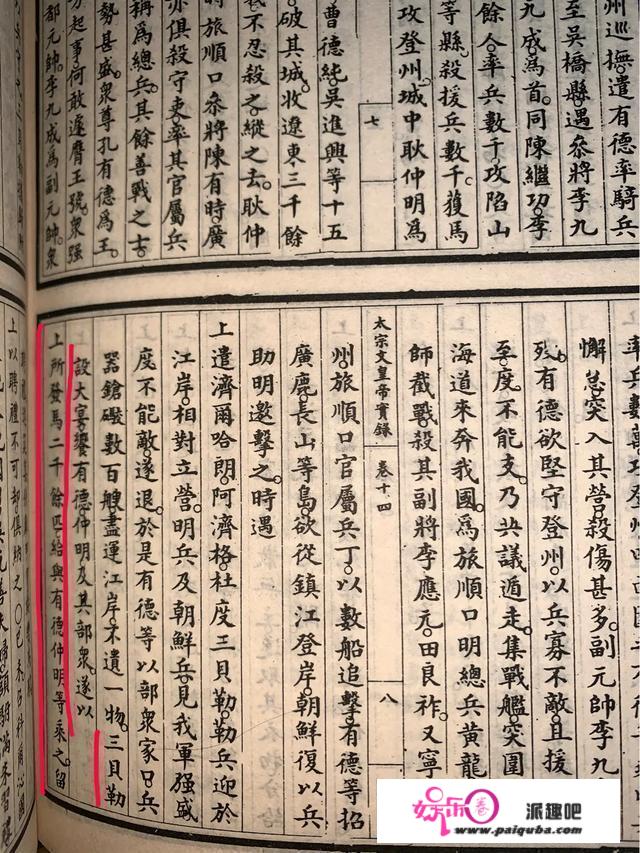 州巡撫。遣有德率騎兵
至吳橋縣。遇叅將李九
九成為首。同陳繼功。李
餘人。率兵數千。攻陷山
等縣。殺援兵數千。獲馬
攻登州。城中耿仲明為
七
曹德純。吳進興等十五
破其城。收遼東三千餘
不忍殺之。縱之去。耿仲
時旅順口叅將陳有時。廣
亦俱殺守吏。率其官屬兵
稱為總兵。其餘善戰之士
勢甚盛。眾尊孔有德為王。
起事。何敢遽膺王號。眾強
都元帥。李九成為副元帥。眾
懈怠。突入其營。殺傷甚多。副元帥李九
殁。有德欲堅守登州。以兵寡不敵。且援
至。度不能支。乃共議遁走。集戰艦。突圍
海道來奔我國。為旅順口明總兵黃龍
師截戰。殺其副將李應元。田良祚。又寧
太宗文皇帝實錄 卷十四 八
州。旅順口官屬兵丁。以數船追擊。有德等招
廣鹿。長山等島。欲從鎮江登岸。朝鮮復以兵
助明邀擊之。時遇
上遣濟爾哈朗。阿濟格。杜度三貝勒。勒兵迎於
江岸。相對立營。明兵及朝鮮兵。見我軍强盛
度不能敵。遂退。於是有德等以部眾家口。兵
器鎗礟。數百艘盡運江岸。不遺一物。三貝勒
設大宴。饗有德仲明及其部眾。遂以
上所發馬二千餘匹。給與有德仲明等乘之。留
上以聘禮不可
娱乐圈 派趣吧
www.paiquba.com